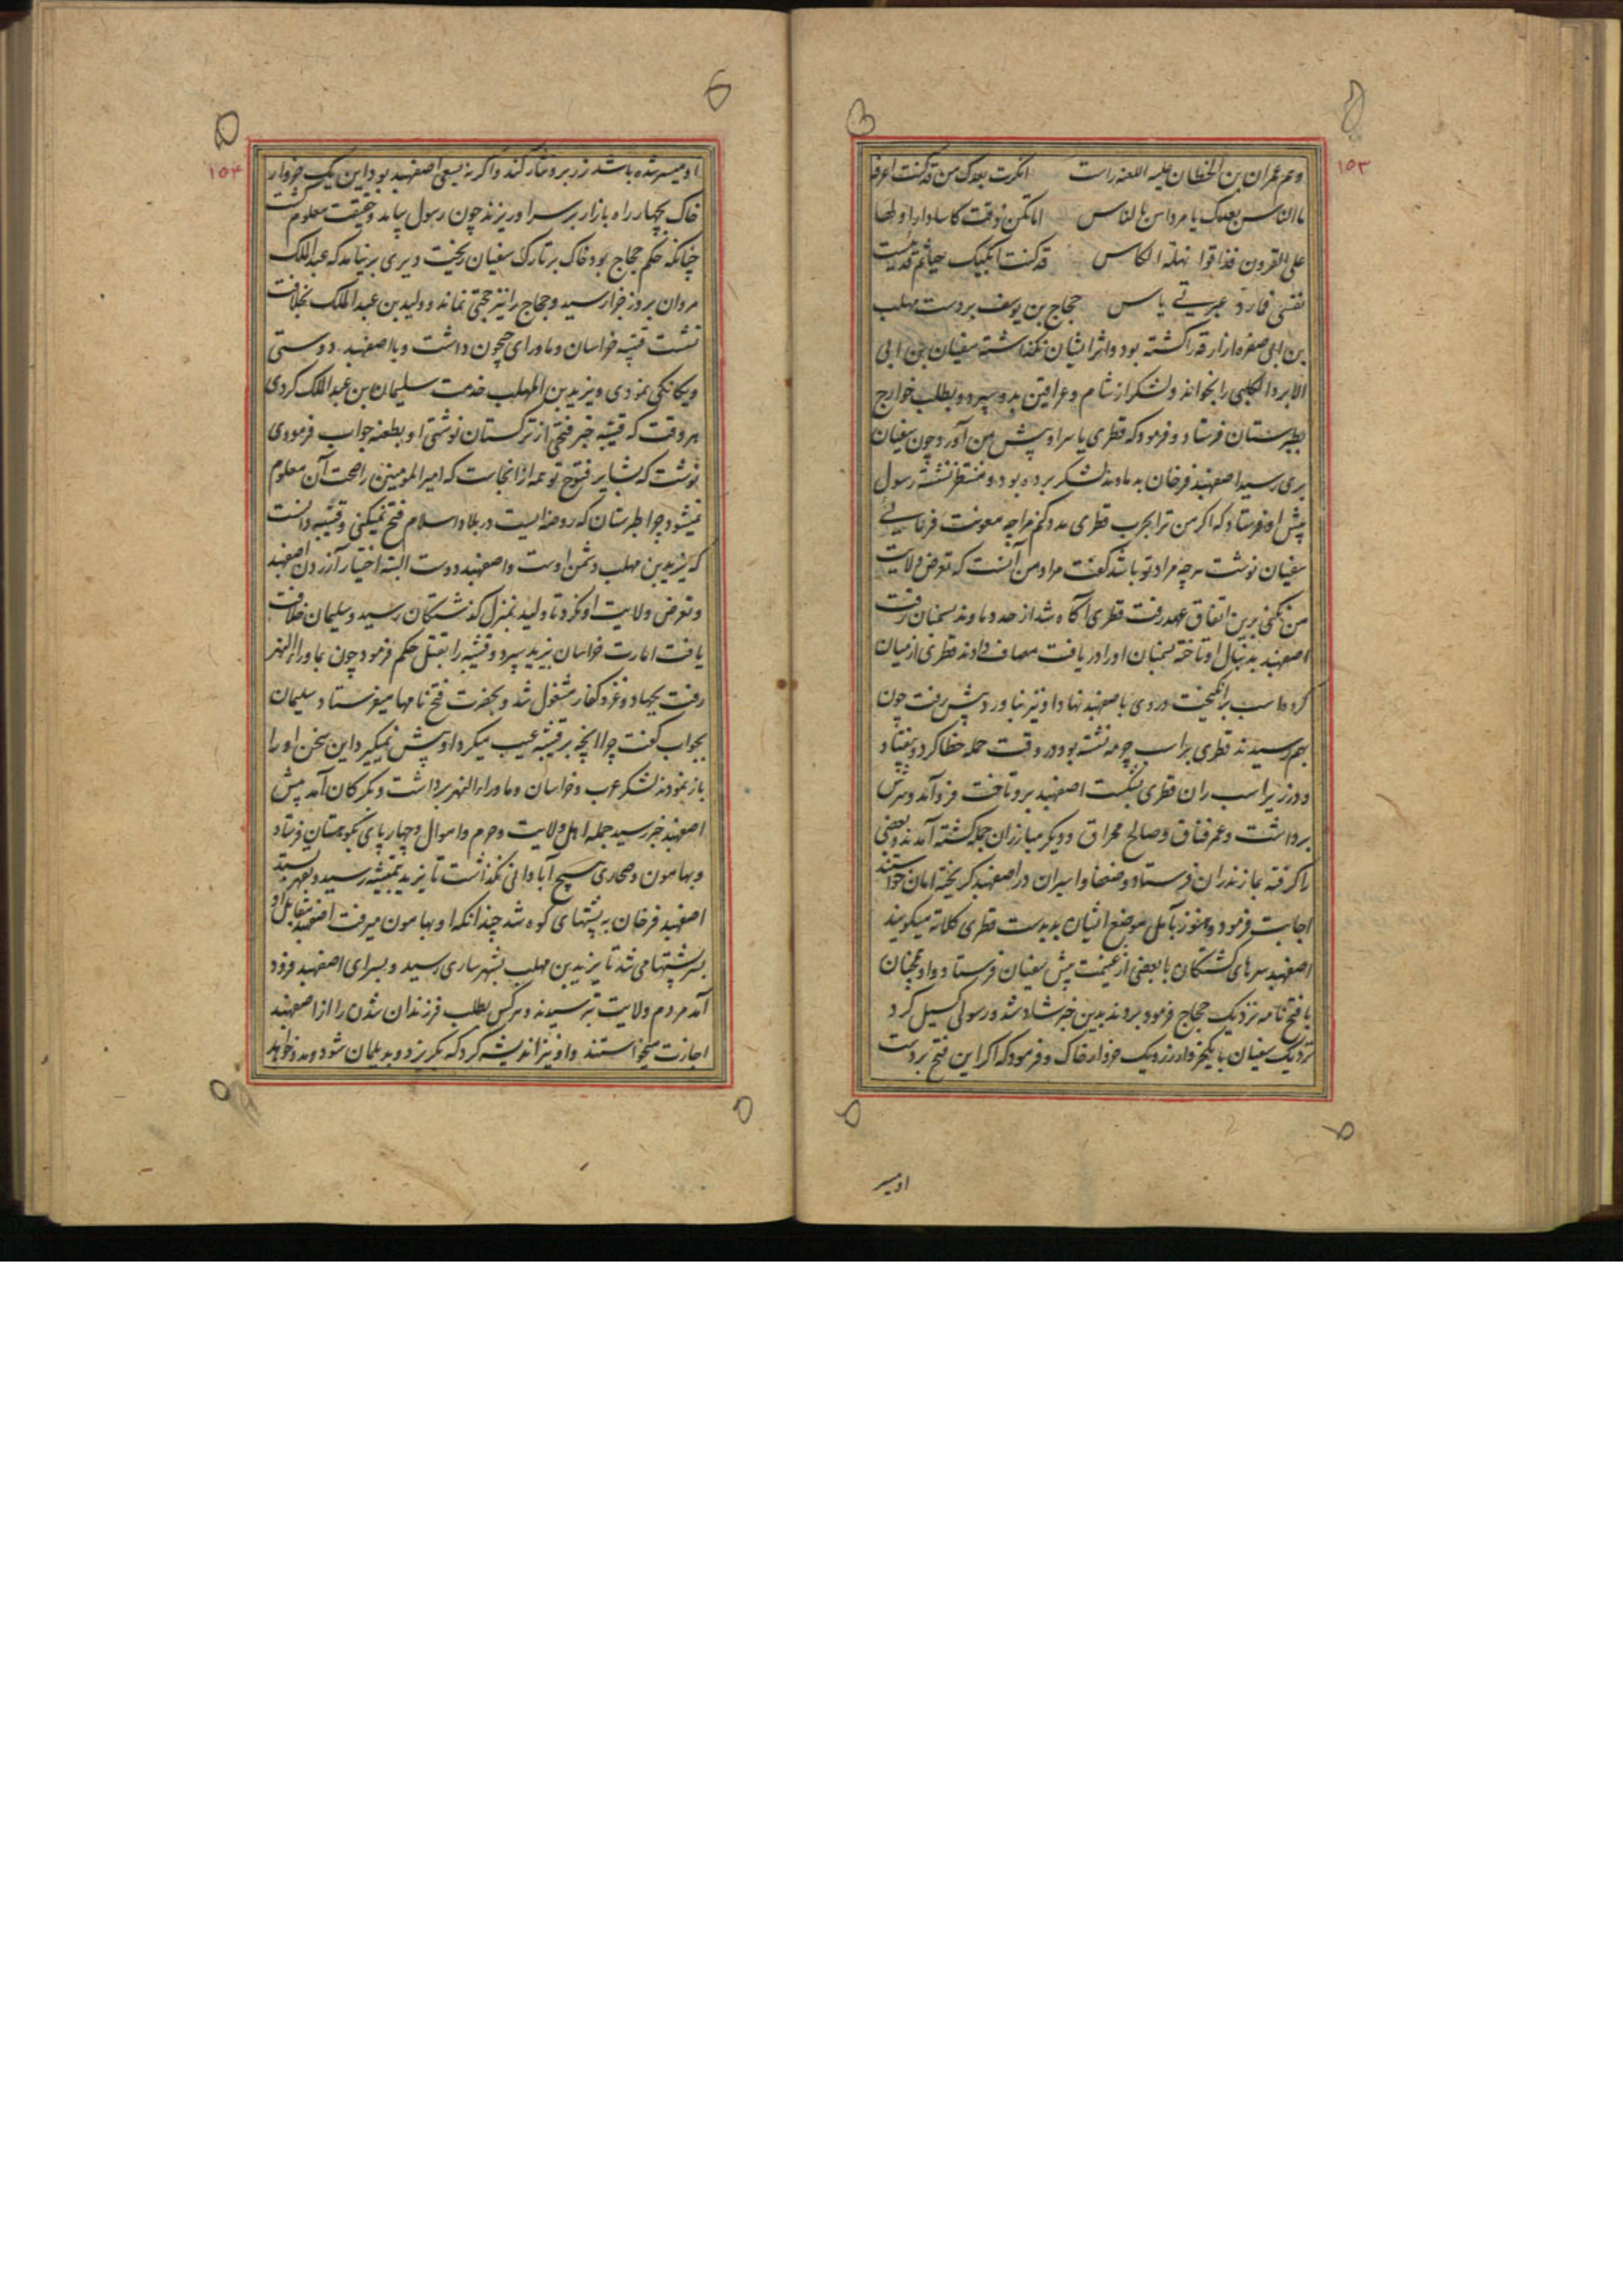 ۱۵۳
وعم عمران بن الخطان علیه اللعنه راست انکرت بعدک من قد کنت اعرفه
ما الناس بعدک یا مرداس بالناس اما تکن ذقت کاسا دار اولها
علی القرون فذاقوا نهلة الکاس قد کنت ابکیک حیاثم قد یئست
نفسی فارد عبرتی یاس حجاج بن یوسف بر دست مهلب
بن ابی صفره ازارقه را کشته بود واثر ایشان نگذاشته سفیان بن ابی
الابرد الکلبی را بخواند ولشکر از شام وعراقین بدو سپرد وبطلب خوارج
بطبرستان فرستاد وفرمود که قطری یا سر او پیش من آور وچون سفیان
بری رسید اصفهبد فرخان بدماوند لشکر برده بود ومنتظر نشسته رسول
پیش او فرستاد که اکر من ترا بحرب قطری مدد کنم مرا چه معونت فرمائی
سفیان نوشت هرچه مراد تو باشد گفت مراد من آنست که تعرض ولایت
من نکنی برین اتفاق عهد رفت قطری آگاه شد از حد دماوند بسمنان رفت
اصفهبد بدنبال او تاخته بسمنان او را دریافت مصاف دادند قطری از میان
کرد اسب برانگیخت وروی باصفهبد نهاد او نیز بناورد پیش رفت چون
بهم رسیدند قطری بر اسب چرمه نشسته بود در وقت حمله خطا کرد وبیفتاد
ودر زیر اسب ران قطری بشکست اصفهبد برو تاخت فرود آمد وسرش
برداشت وعمر فناق وصالح مخراق ودیکر مبارزان جمله کشته آمدند وبعضی
را گرفته بمازندران فرستاد وضعفا واسیران در اصفهبد گریخته امان خواستند
اجابت فرمود وهنوز بآمل موضع ایشان پدیدست قطری کلاته میگویند
اصفهبد سرهای کشتگان با بعضی از غنیمت پیش سفیان فرستاد واو همچنان
با فتح نامه نزدیک حجاج فرمود بردند بدین خبر شاد شد ورسولی گسیل کرد
نزدیک سفیان با یکخروار زر ویک خروار خاک وفرمود که اکر این فتح بر دست
او میسر
۱۵۴
او میسر شده باشد زر برو نثار کند واکر نه بسعی اصفهبد بود این یک خروار
خاک بچهار راه بازار بر سر او ریزند چون رسول بیامد وحقیقت معلوم گشت
چنانکه حکم حجاج بود خاک بر تارک سفیان ریخت ودیری برنیامد که عبدالملک
مروان بروز خوار رسید وحجاج را نیز حجتی نماند وولید بن عبدالملک بخلافت
نشست قتیبه خراسان وماورای جیحون داشت وبا اصفهبد دوستی
ویکانکی نمودی ویزید بن المهلب خدمت سلیمان بن عبدالملک کردی
هر وقت که قتیبه خبر فتحی از ترکستان نوشتی او بطعنه جواب فرمودی
نوشت که بشایر فتوح تو همه از انجاست که امیر المومنین را صحت آن معلوم
نمیشود چرا طبرستان که روضه ایست در بلاد اسلام فتح نمیکنی وقتیبه دانست
که یزید بن مهلب دشمن اوست واصفهبد دوست البته اختیار آزردن اصفهبد
وتعرض ولایت او نکرد تا ولید بمنزل گذشتگان رسید وسلیمان خلافت
یافت امارت خراسان بیزید سپرد وقتیبه را بقتل حکم فرمود چون بماوراالنهر
رفت بجهاد وغزو کفار مشغول شد وبحضرت فتح نامها میفرستاد سلیمان
بجواب گفت چرا انچه بر قتیبه عیب میکرد او پیش نمیگیرد این سخن او را
باز نمودند لشکر عرب وخراسان وماوراالنهر برداشت وبکرکان آمد پیش
اصفهبد خبر رسید جمله اهل ولایت وحرم واموال وچهار پای بکوهستان فرستاد
وبهامون وصحاری هیچ آبادانی نگذاشت تا یزید بتمیشه رسید وبقهر بستد
اصفهبد فرخان به پشتهای کوه شد چندانکه او بهامون میرفت اصفهبد بمقابل او
بسر پشتها می شد تا یزید بن مهلب بشهر ساری رسید وبسرای اصفهبد فرود
آمد مردم ولایت بترسیدند وهر کس بطلب فرزندان شدن را از اصفهبد
اجازت میخواستند واو نیز اندیشه کرد که بگریزد وبدیلمان شود ومدد خواهد